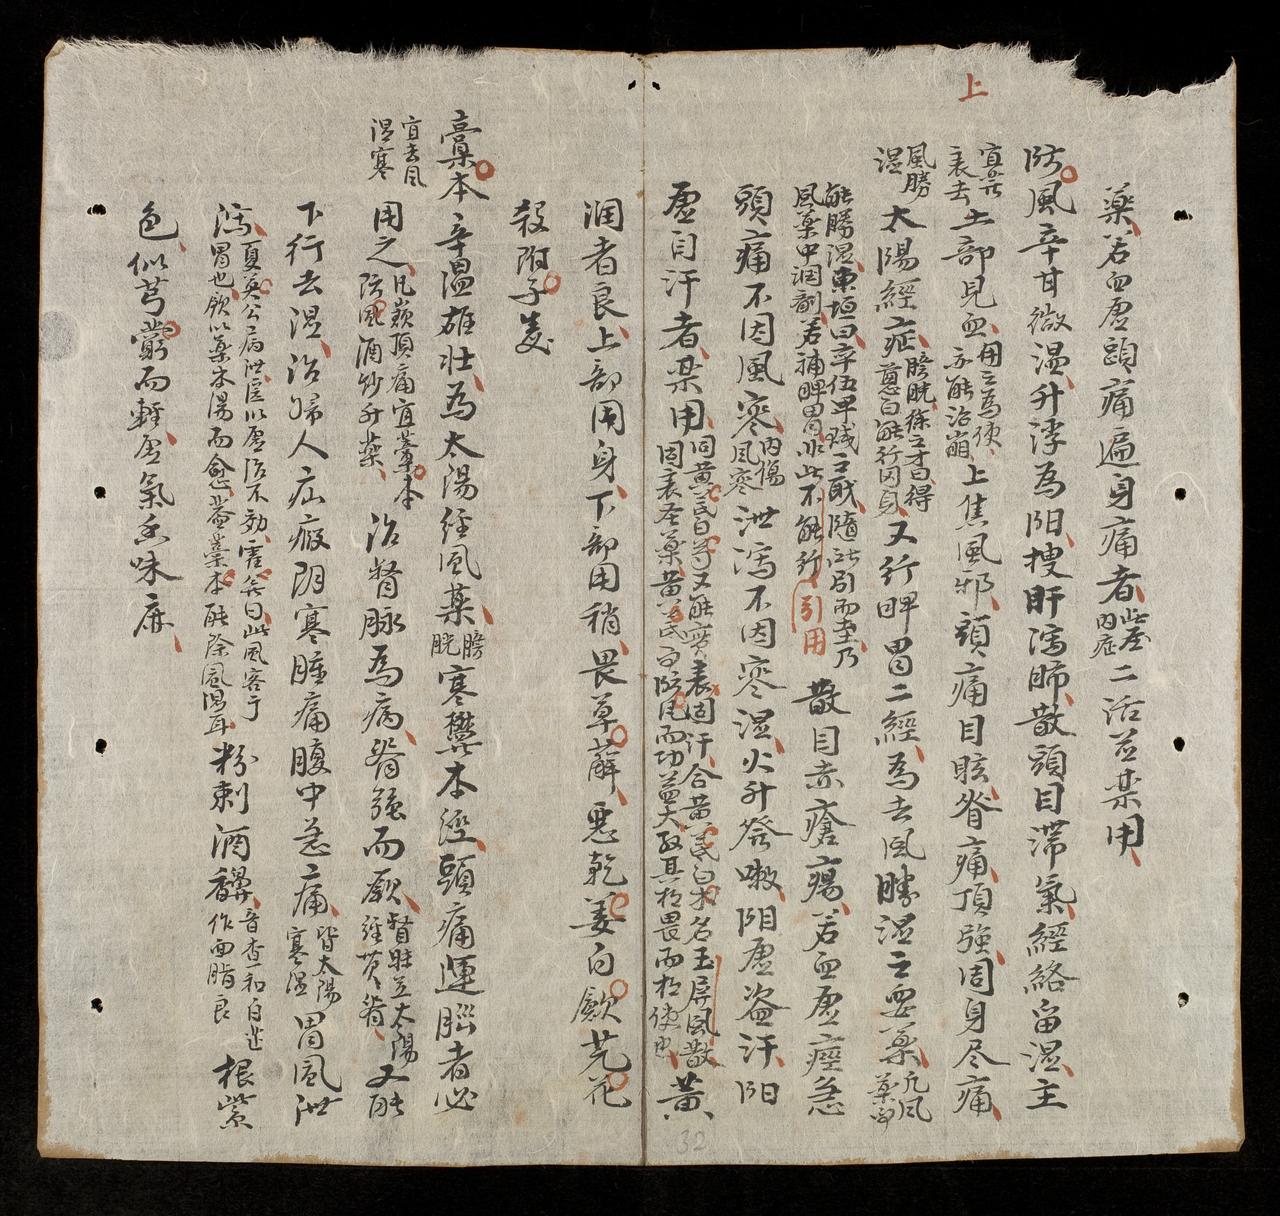 上
藥、若血虛頭痛遍身痛者、此屬內症二活並禁用、
防風辛甘微溫、升浮為陽、搜肝瀉肺、散頭目滯氣、經絡畱湿、主
上部見血、用之為使、亦能治崩上焦風邪、頭痛目眩脊痛頂強周身尽痛、
太陽經症、膀胱、徐之才曰得葱白能行周身又行脾胃二經、為去风勝湿之要藥、凡风藥皆
能勝湿、東垣曰卒伍卑賤之職、隨所引而至、乃風藥中润劑、若補脾胃非此不能行
引用
散目赤瘡瘍、若血虛痙急
頭痛不因風寒、內傷風寒泄瀉不因寒湿、火升發嗽、阳虛盗汗、阳
虛自汗者、禁用、同黃芪白芍又能實表固汗、合黃芪白术名玉屏風散、固表圣藥、黃芪得防风而功益大、取其相畏而相使也、黃
润者良、上部用身、下部用稍、畏草薢、惡乾姜白歛芫花
殺附子毒
宜去風湿寒
藁本辛溫雄壮、為太陽经风藥、膀胱寒欝本經、頭痛連腦者必
用之、凡巔頂痛宜藁本防風酒炒升柴、治督脉為病、脊強而厥、督脉並太陽經貫脊、又能
下行去湿、治婦人疝瘕阴寒腫痛腹中急痛、皆太陽寒湿胃风泄
瀉、夏英公病泄医以虛治不効、霍翁曰此風客于胃也、飲以藁本湯而愈、蓋藁本能除風湿耳、粉刺酒齄、音查和白芷作面脂良根紫
色、似芎藭而軽虛、氣香味麻、
32